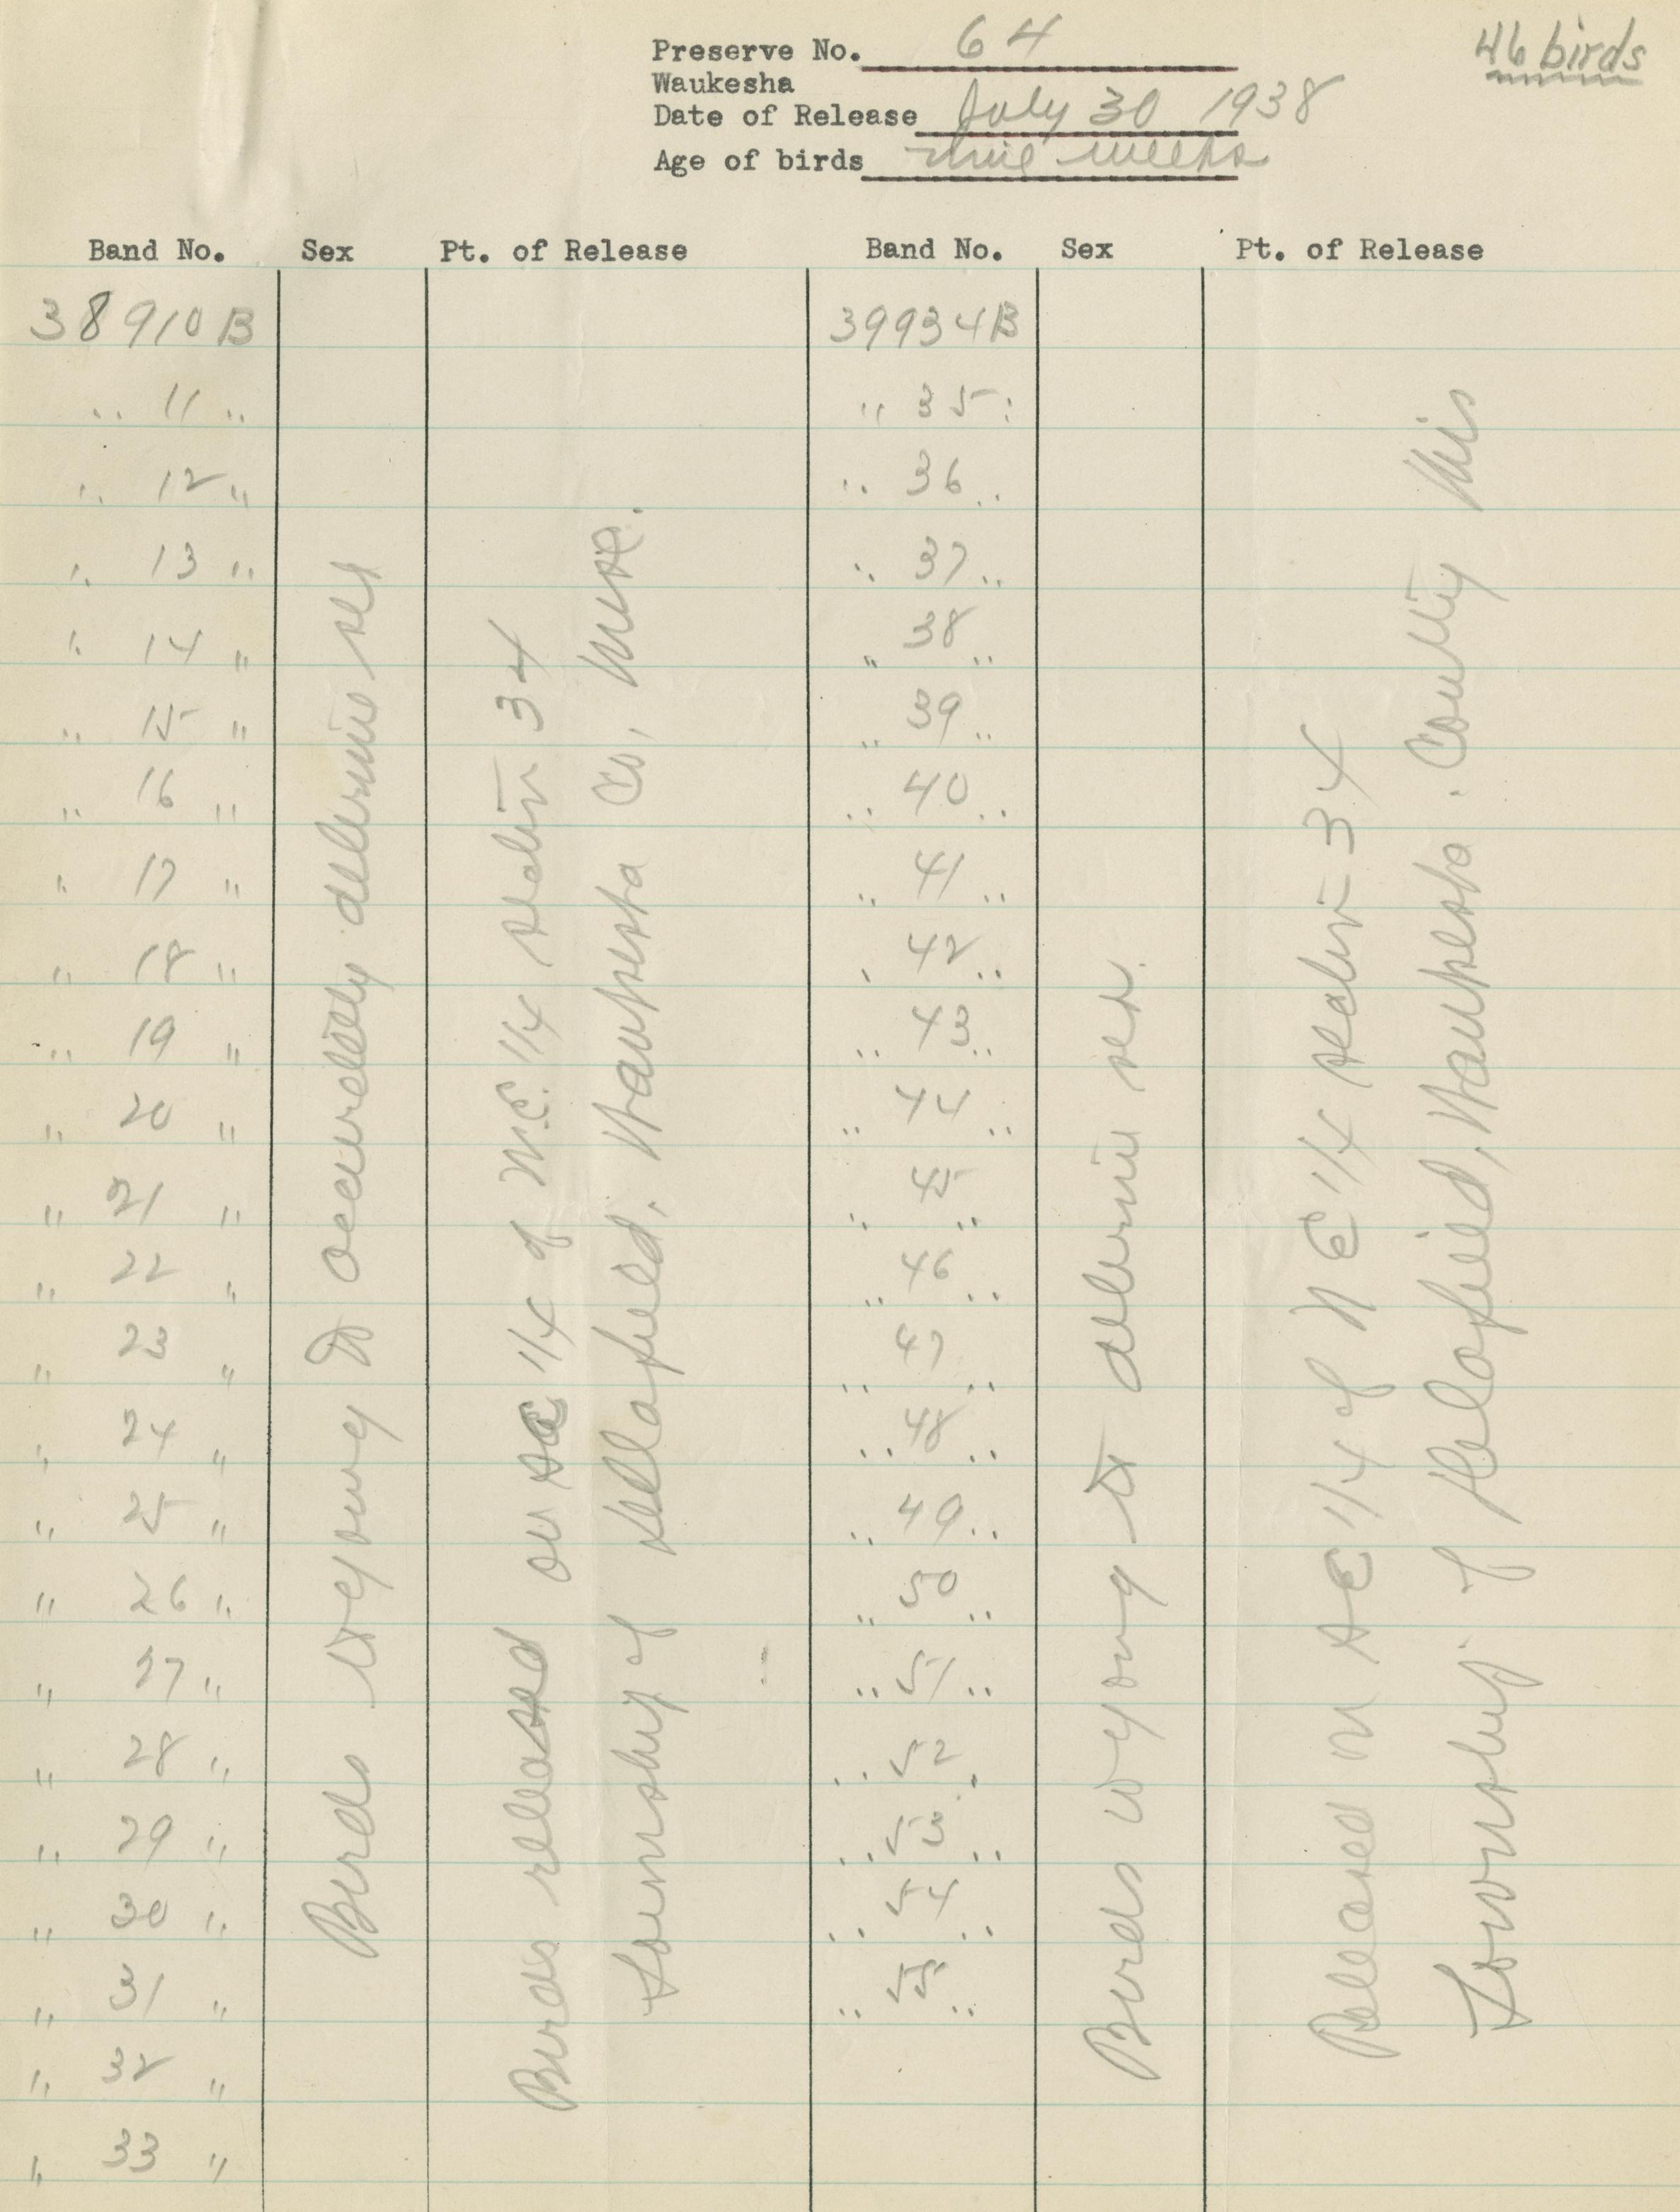 46 birds
Preserve No. 64
Waukesha
Date of Release July 30 1938
Age of birds nine weeks
Band No. Sex Pt. of Release Band No. Sex Pt. of Release
38910B 39934B
" 11 " " 35 "
" 12 " " 36 "
" 13 " " 37 "
" 14 " " 38 "
" 15 " " 39 "
" 16 " " 40 "
" 17 " " 41 "
" 18 " " 42 "
" 19 " " 43 "
" 20 " " 44 "
" 21 " " 45 "
" 22 " " 46 "
" 23 " " 47 "
" 24 " " 48 "
" 25 " " 49 "
" 26 " " 50 "
" 27 " " 51 "
" 28 " " 52 "
" 29 " " 53 "
" 30 " " 54 "
" 31 " " 55 "
" 32 "
" 33 "
Birds to young to accurately determine sex
Birds released on SE 1/4 of N.E. 1/4 section 34
Township of Delafield, Waukesha Co, Wis.
Birds to young to determine sex.
Released on SE 1/4 of N E 1/4 section 34
Township of Delafield, Waukesha County Wis